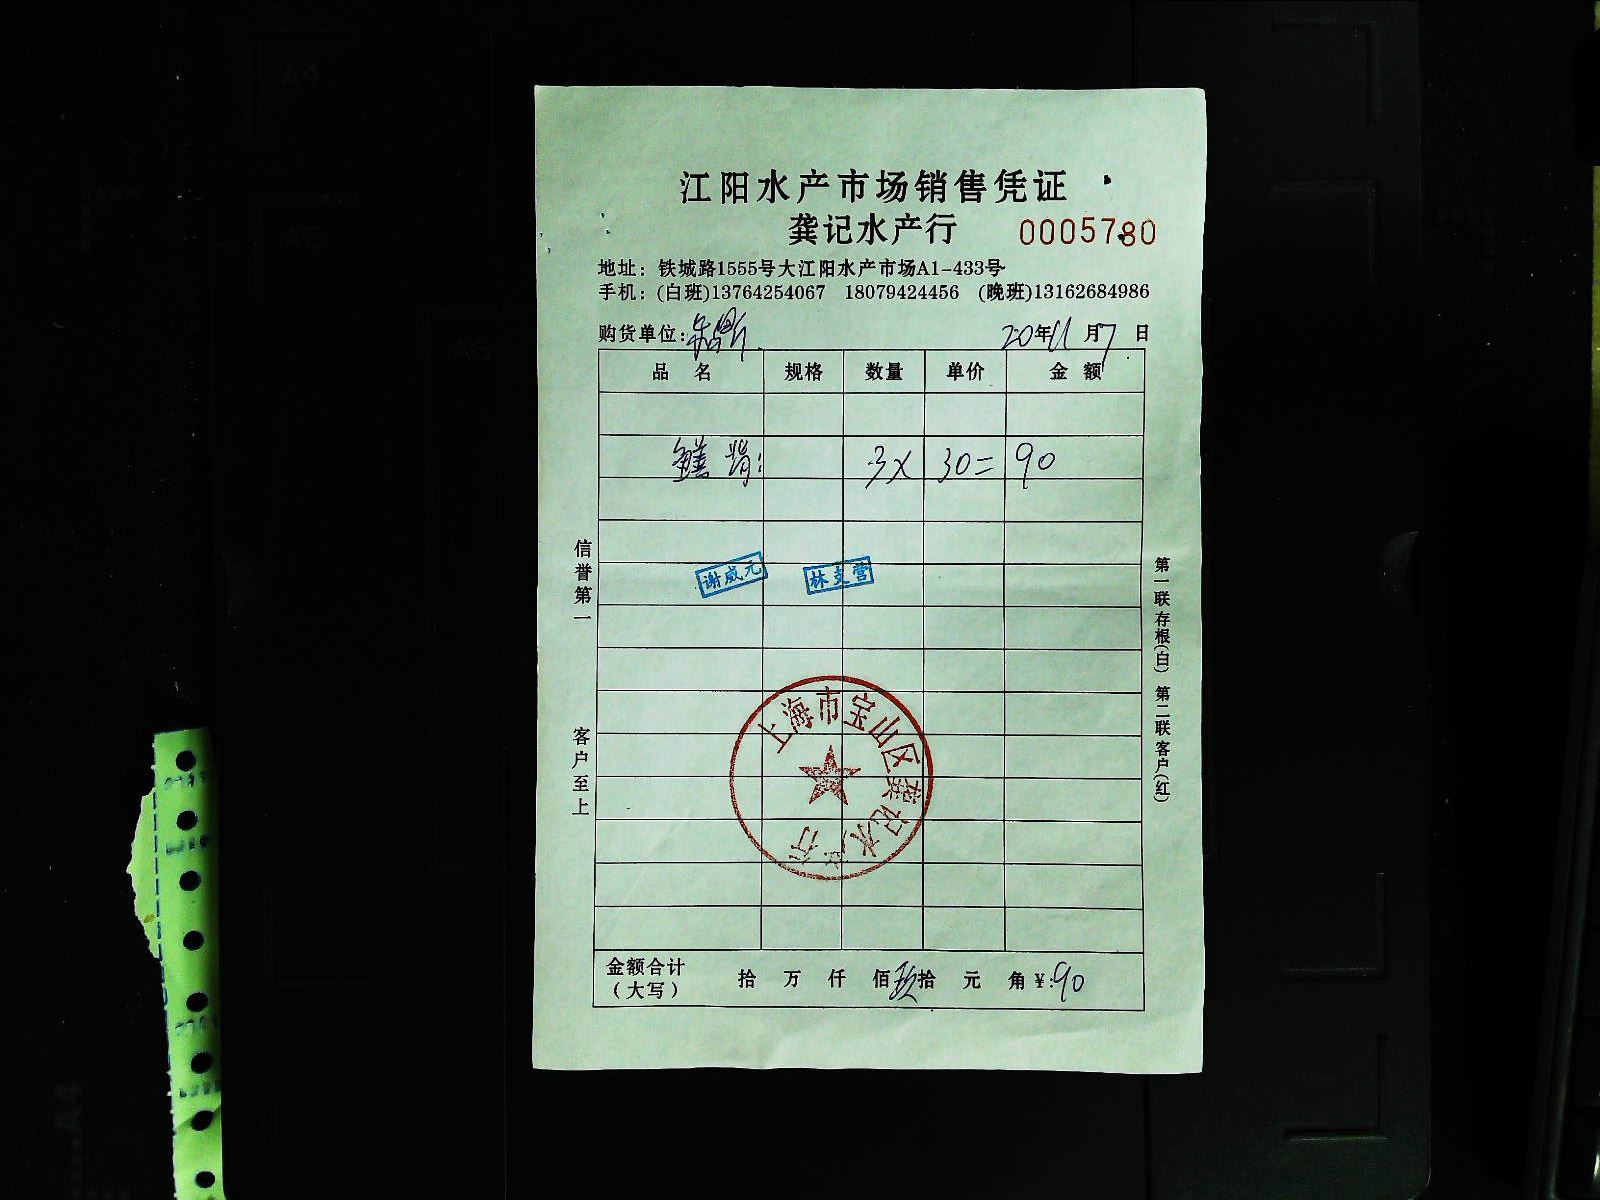 江阳水产市场销售凭证
龚记水产行 0005780
地址：铁城路1555号大江阳水产市场A1-433号
手机：(白班)13764254067 18079424456 (晚班)13162684986
购货单位： 20年11月7日
品 名 规格 数量 单价 金 额
鳝背： 3× 30= 90
谢威元 林支营
信誉第一 客户至上
第一联存根(白) 第二联客户(红)
上海市宝山区龚记水产行
金额合计 拾 万 仟 佰玖拾 元 角￥:90
（大写）
A4
A5
A5
A4